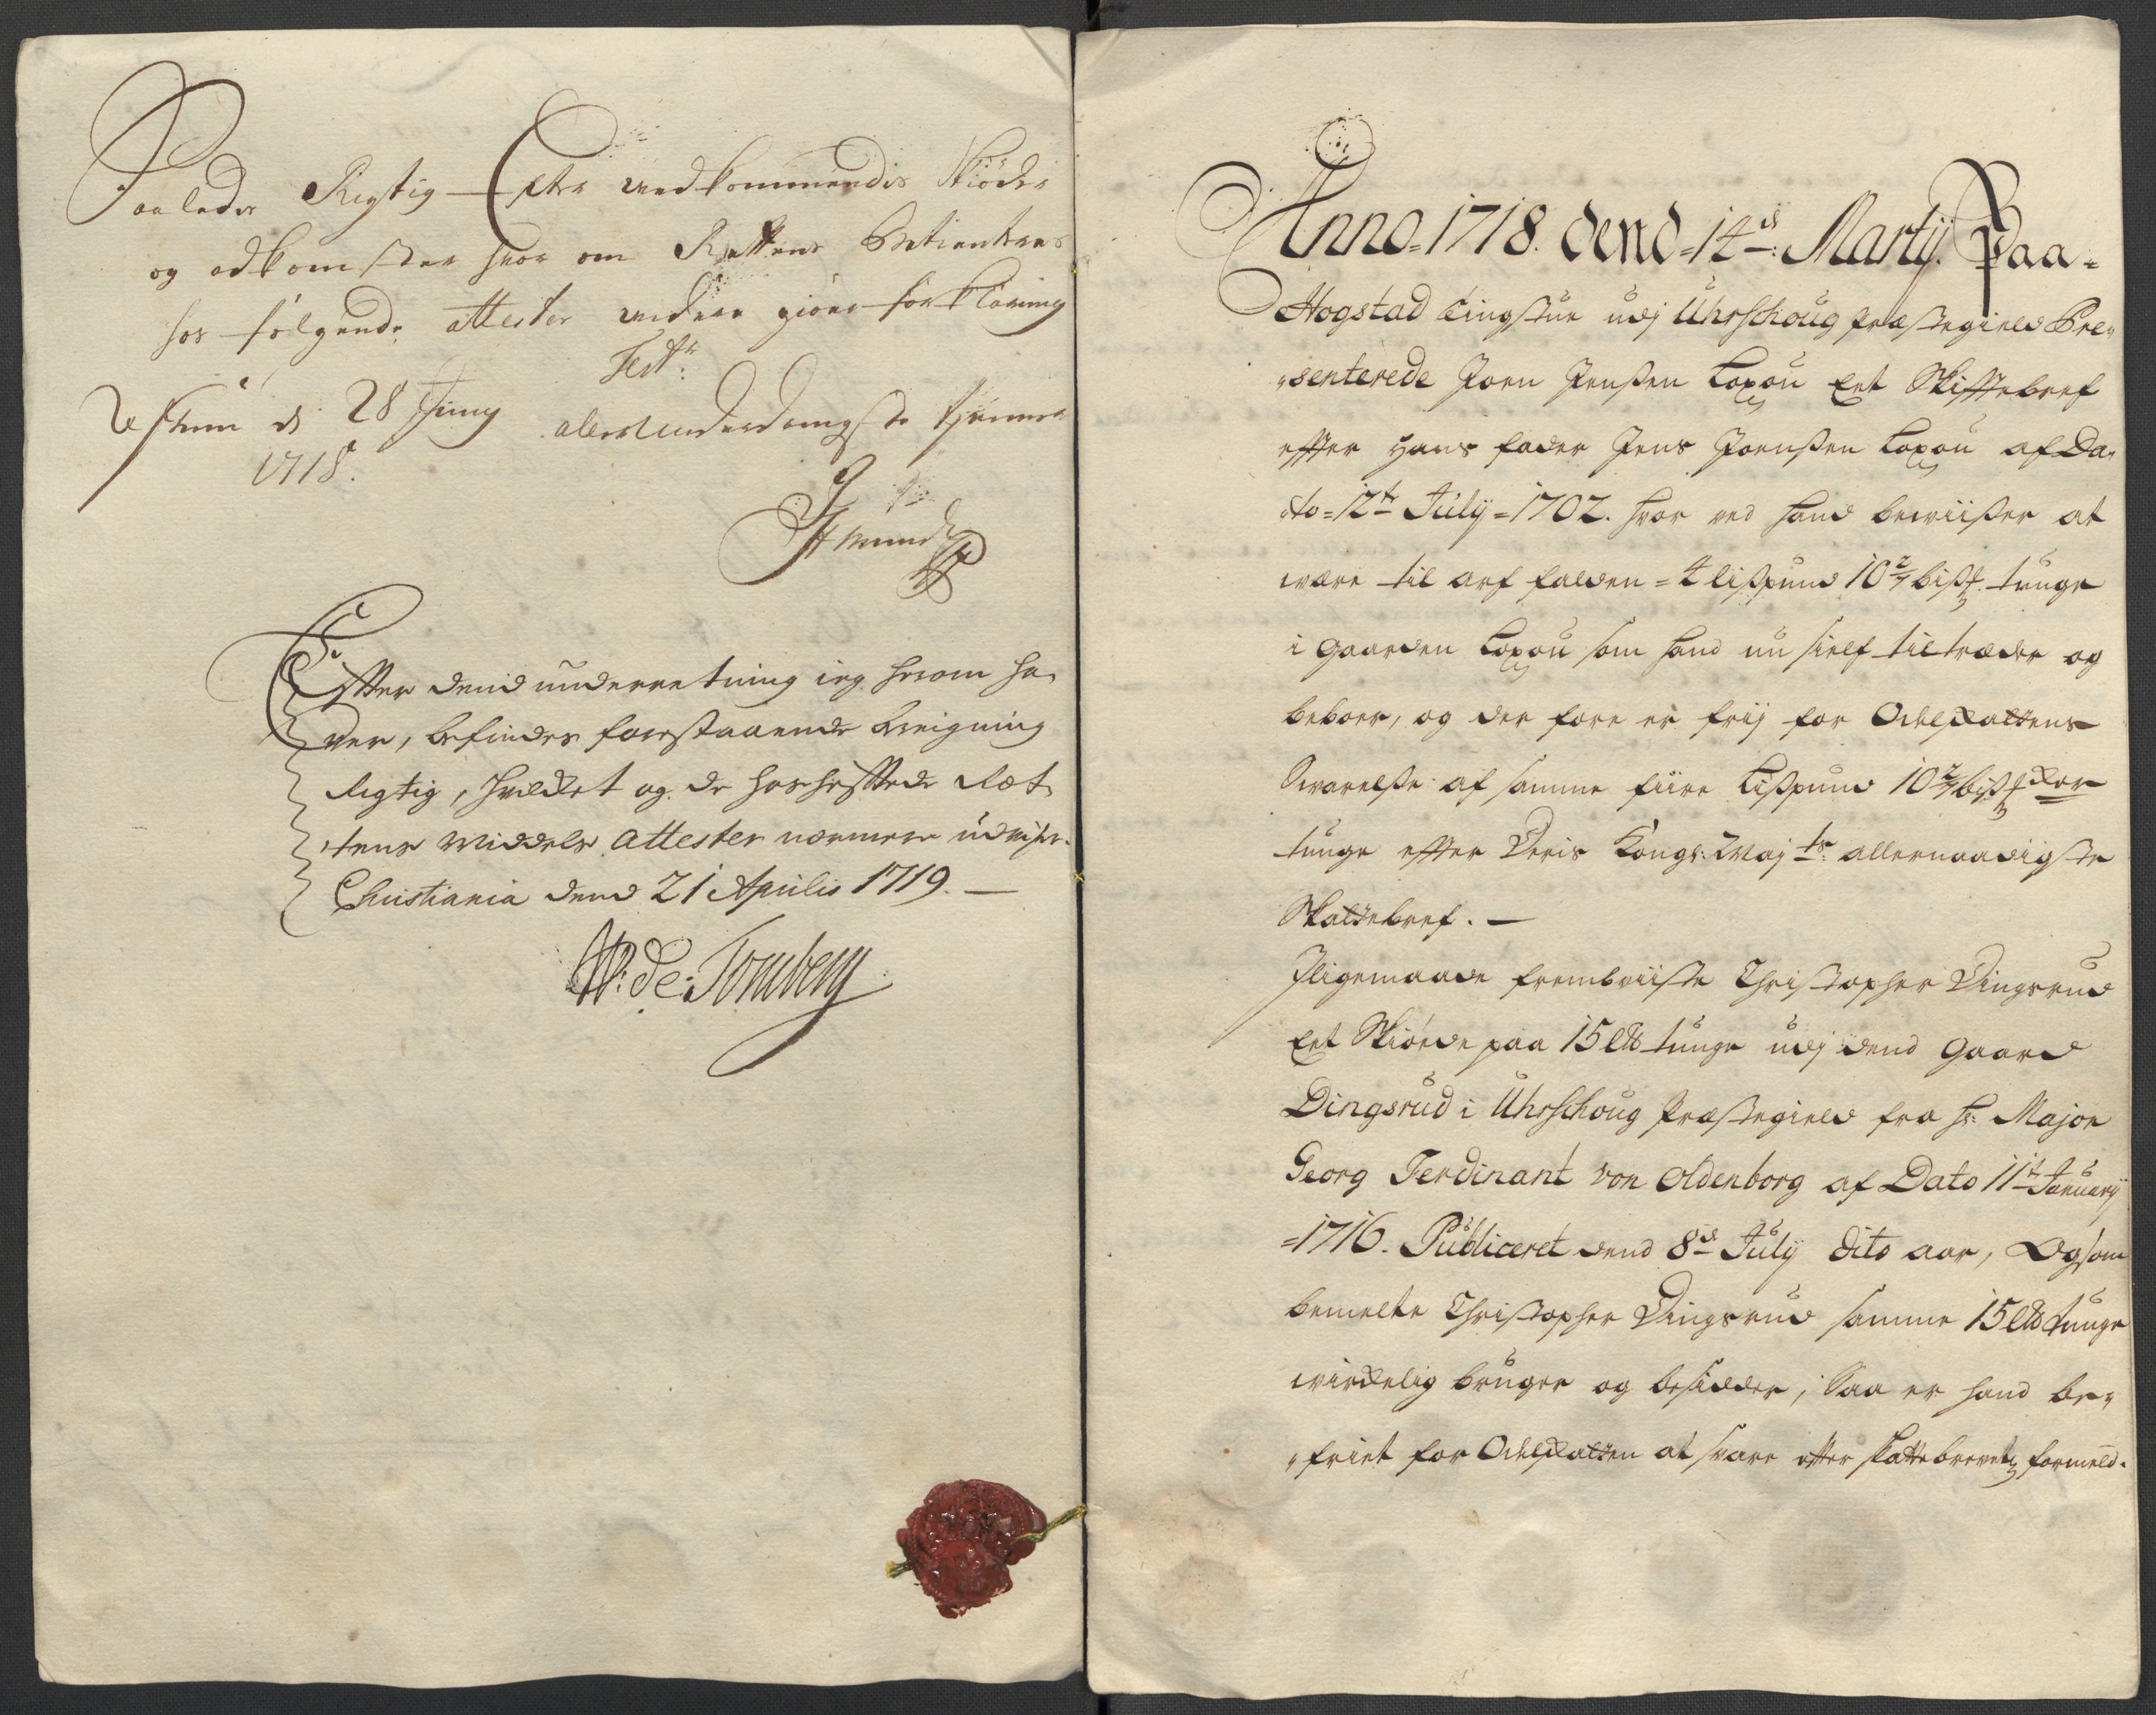 Saaledes Rigtig Efter vedkommendis Skiøder
og adkomster hvor om Rettens Betientres
hos følgende attester videre giører forklaring
Test:
Ustrum d 28 Juny allerunderdanigste tienner
1718.
Efter dend underretning ieg herom ha-
ver, befindes forestaaende bereigning
Rigtig, hvilket og de hoshefftede Ret-
tens Middels attester nærmere udviser.
Christiania dend 21 Aprilis 1719.
W: de: Tonsberg
Anno 1718. dend 14de: Martij. Paa
Hogstad tingstue udj Uhrschoug præstegield Pre-
senterede Joen Jensen Toxou Eet Skifftebref
effter Hans fader Jens Joensen Toxou af Da-
to 12te July 1702. hvor ved hand beviiser at
være til arf falden 4 lispund 10 2/7 bispd tunge
i gaarden Toxou som hand nu sielf tiltræder og
beboer, og der fore er frij for Odelskattens
Svarelse af samme fiire Lispund 10 2/7 bispd
tunge effter Deris Kongl: Maj ts: allernaadigste
Skattebref.
Iligemaade frembviiste Christopher Dingsrud
Eet Skiøde paa 15 lb tunge udj dend gaard
Dingsrud i Uhrschoug Præstegield fra Hr: Major
Georg Ferdinant von Oldenborg af Dato 11te January
1716. Publiceret dend 8de July dito aar, Og som
bemelte Christopher Dingsrud samme 15 lb tunge
virkelig bruger og besidder, Saa er hand be-
friet for Odelskatten at svare efter skattebrevets formeld.